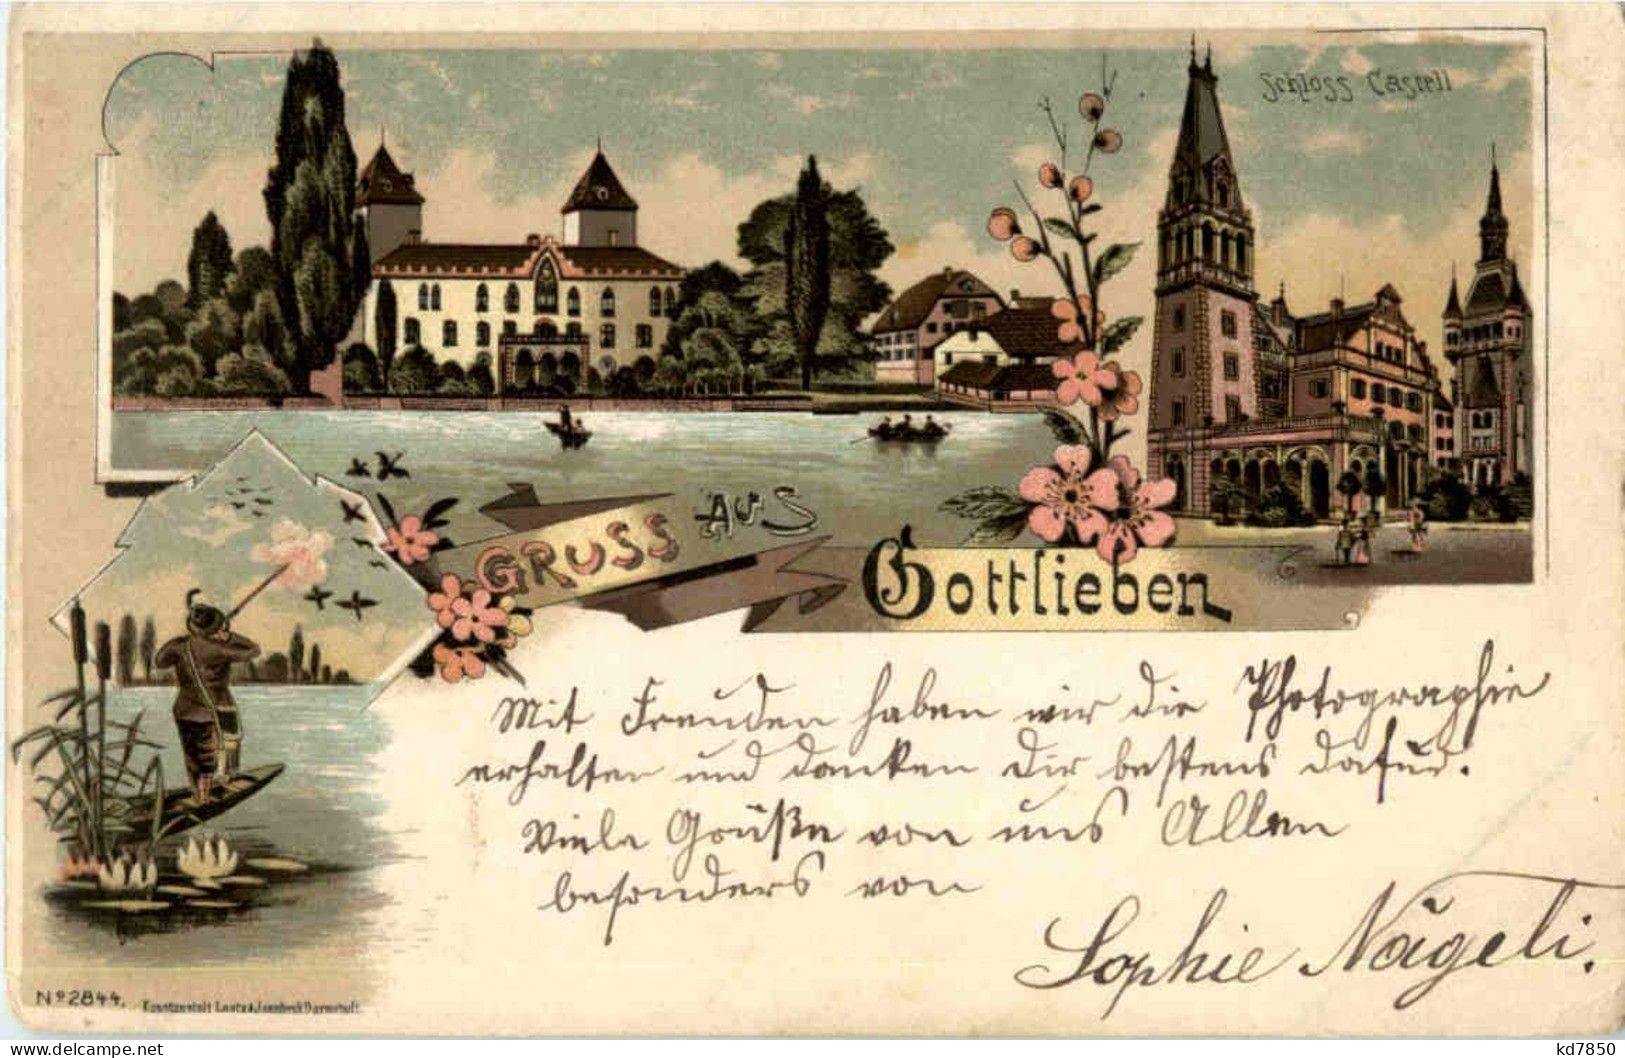 Schloss Castell
GRUSS AUS
Gottlieben
Mit Freuden haben wir die Photographie
erhalten und danken Dir bestens dafür.
Viele Grüße von uns Allen
besonders von
Sophie Nägeli.
No 2844.
Kunstanstalt Lautz & Isenbeck Darmstadt.
kd7850